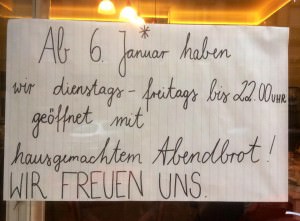 Ab 6. Januar* haben
wir dienstags - freitags bis 22.00 UHR
geöffnet mit
hausgemachtem Abendbrot!
WIR FREUEN UNS.